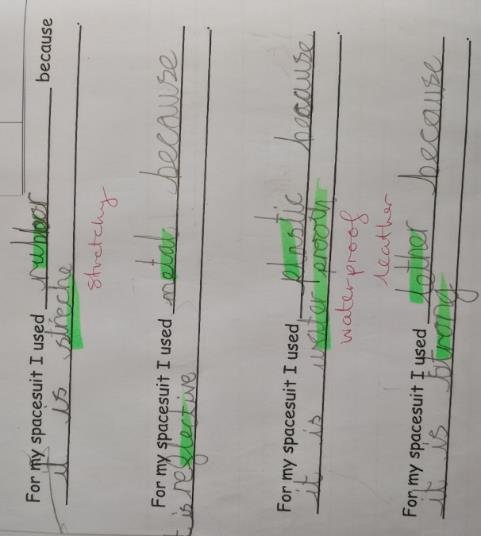 For my spacesuit I used rubber because
it is streche
stretchy
For my spacesuit I used metal because
is reflective
For my spacesuit I used plastic because
it is water prooth
waterproof
leather
For my spacesuit I used lether because
it is strong